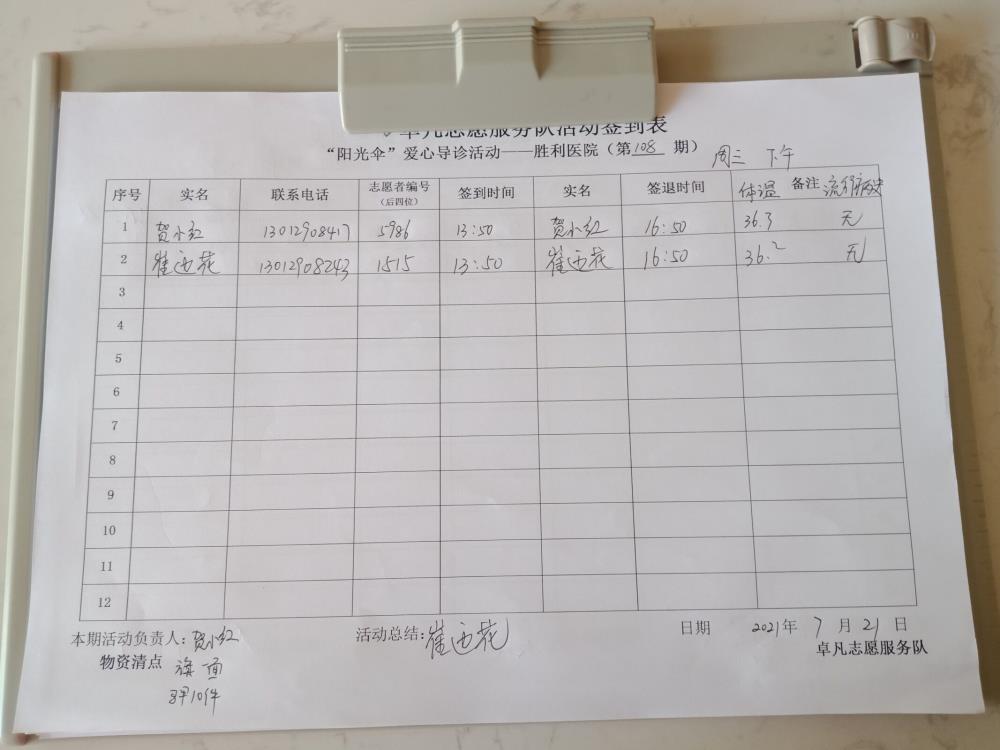 卓凡志愿服务队活动签到表
“阳光伞”爱心导诊活动——胜利医院（第108期） 周三 下午
序号 实名 联系电话 志愿者编号（后四位） 签到时间 实名 签退时间 体温 备注 流行病史
1 贺小红 13012908417 5986 13:50 贺小红 16:50 36.3 无
2 崔西花 13012908243 1515 13:50 崔西花 16:50 36.2 无
3
4
5
6
7
8
9
10
11
12
本期活动负责人：贺小红 活动总结：崔西花 日期 2021年7月21日
物资清点 旗 面 卓凡志愿服务队
10件